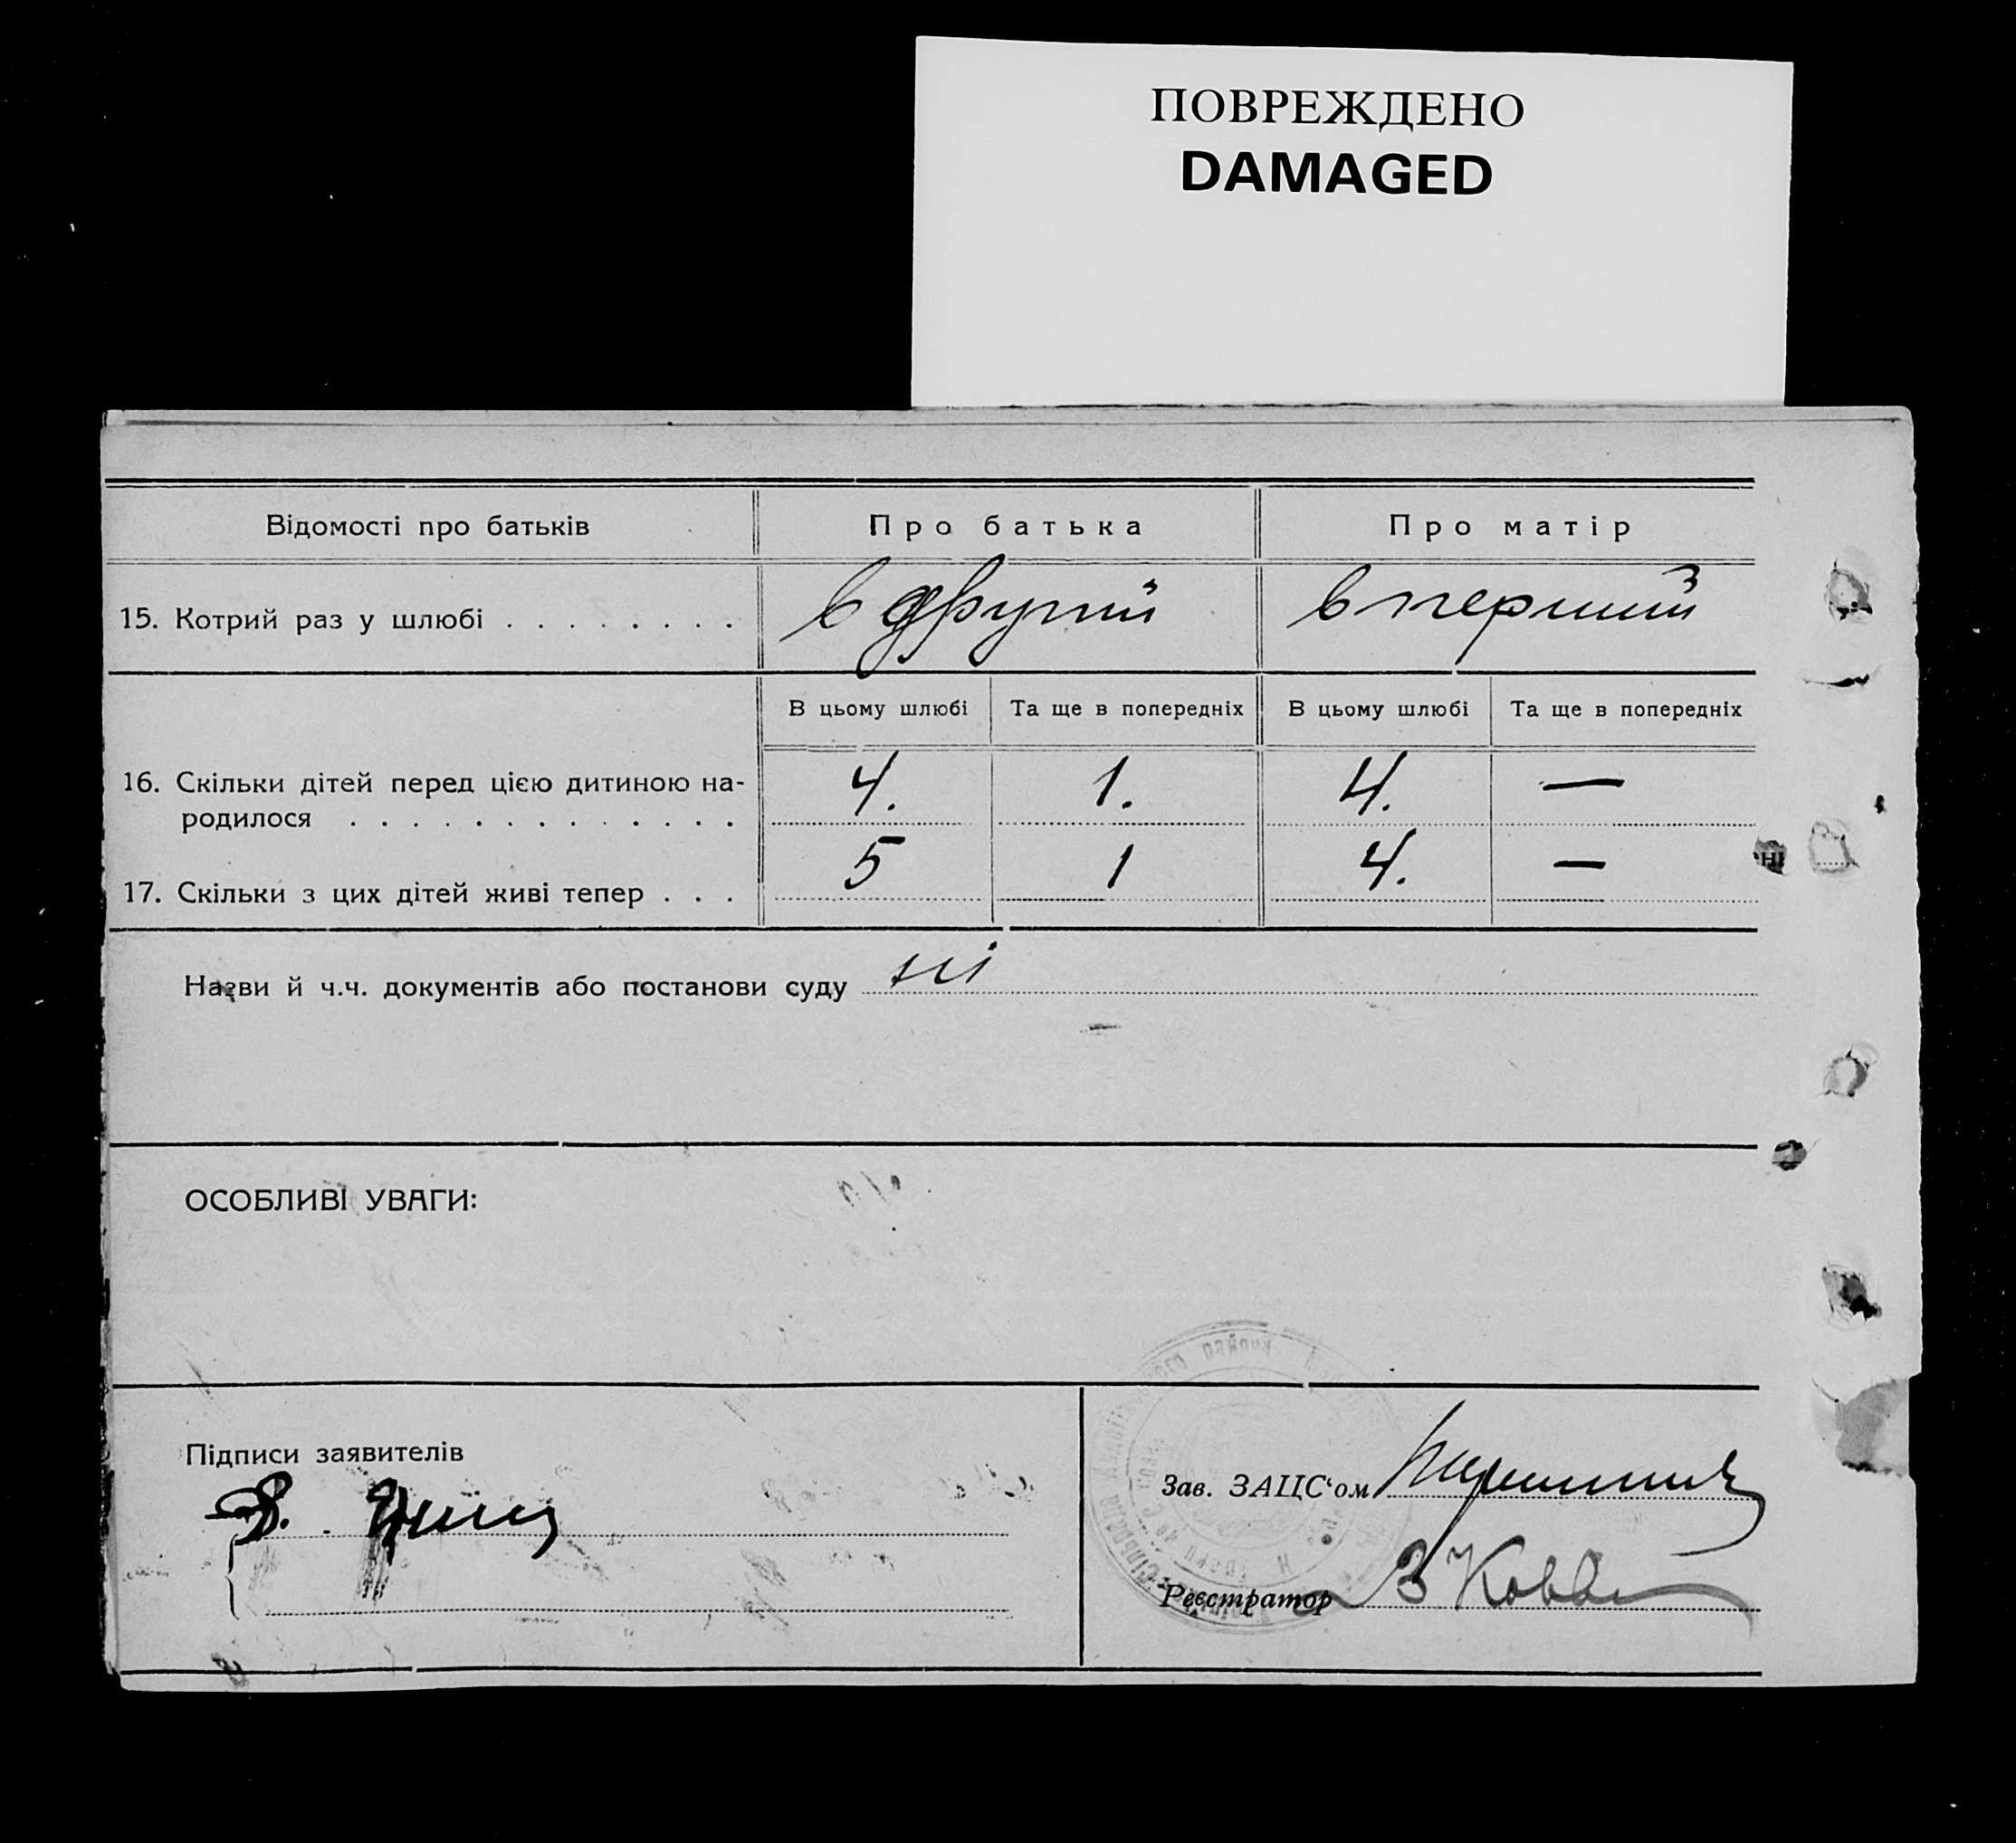 ПОВРЕЖДЕНО
DAMAGED
Відомості про батьків Про батька Про матір
15. Котрий раз у шлюбі . . . . . . . . в другий в перший
В цьому шлюбі Та ще в попередніх В цьому шлюбі Та ще в попередніх
16. Скільки дітей перед цією дитиною на-
родилося . . . . . . . . . . . . . 4. 1. 4. —
17. Скільки з цих дітей живі тепер . . . 5 1 4. —
Назви й ч.ч. документів або постанови суду ні
ОСОБЛИВІ УВАГИ:
Підписи заявителів
Зав. ЗАЦС‘ом
Реєстратор